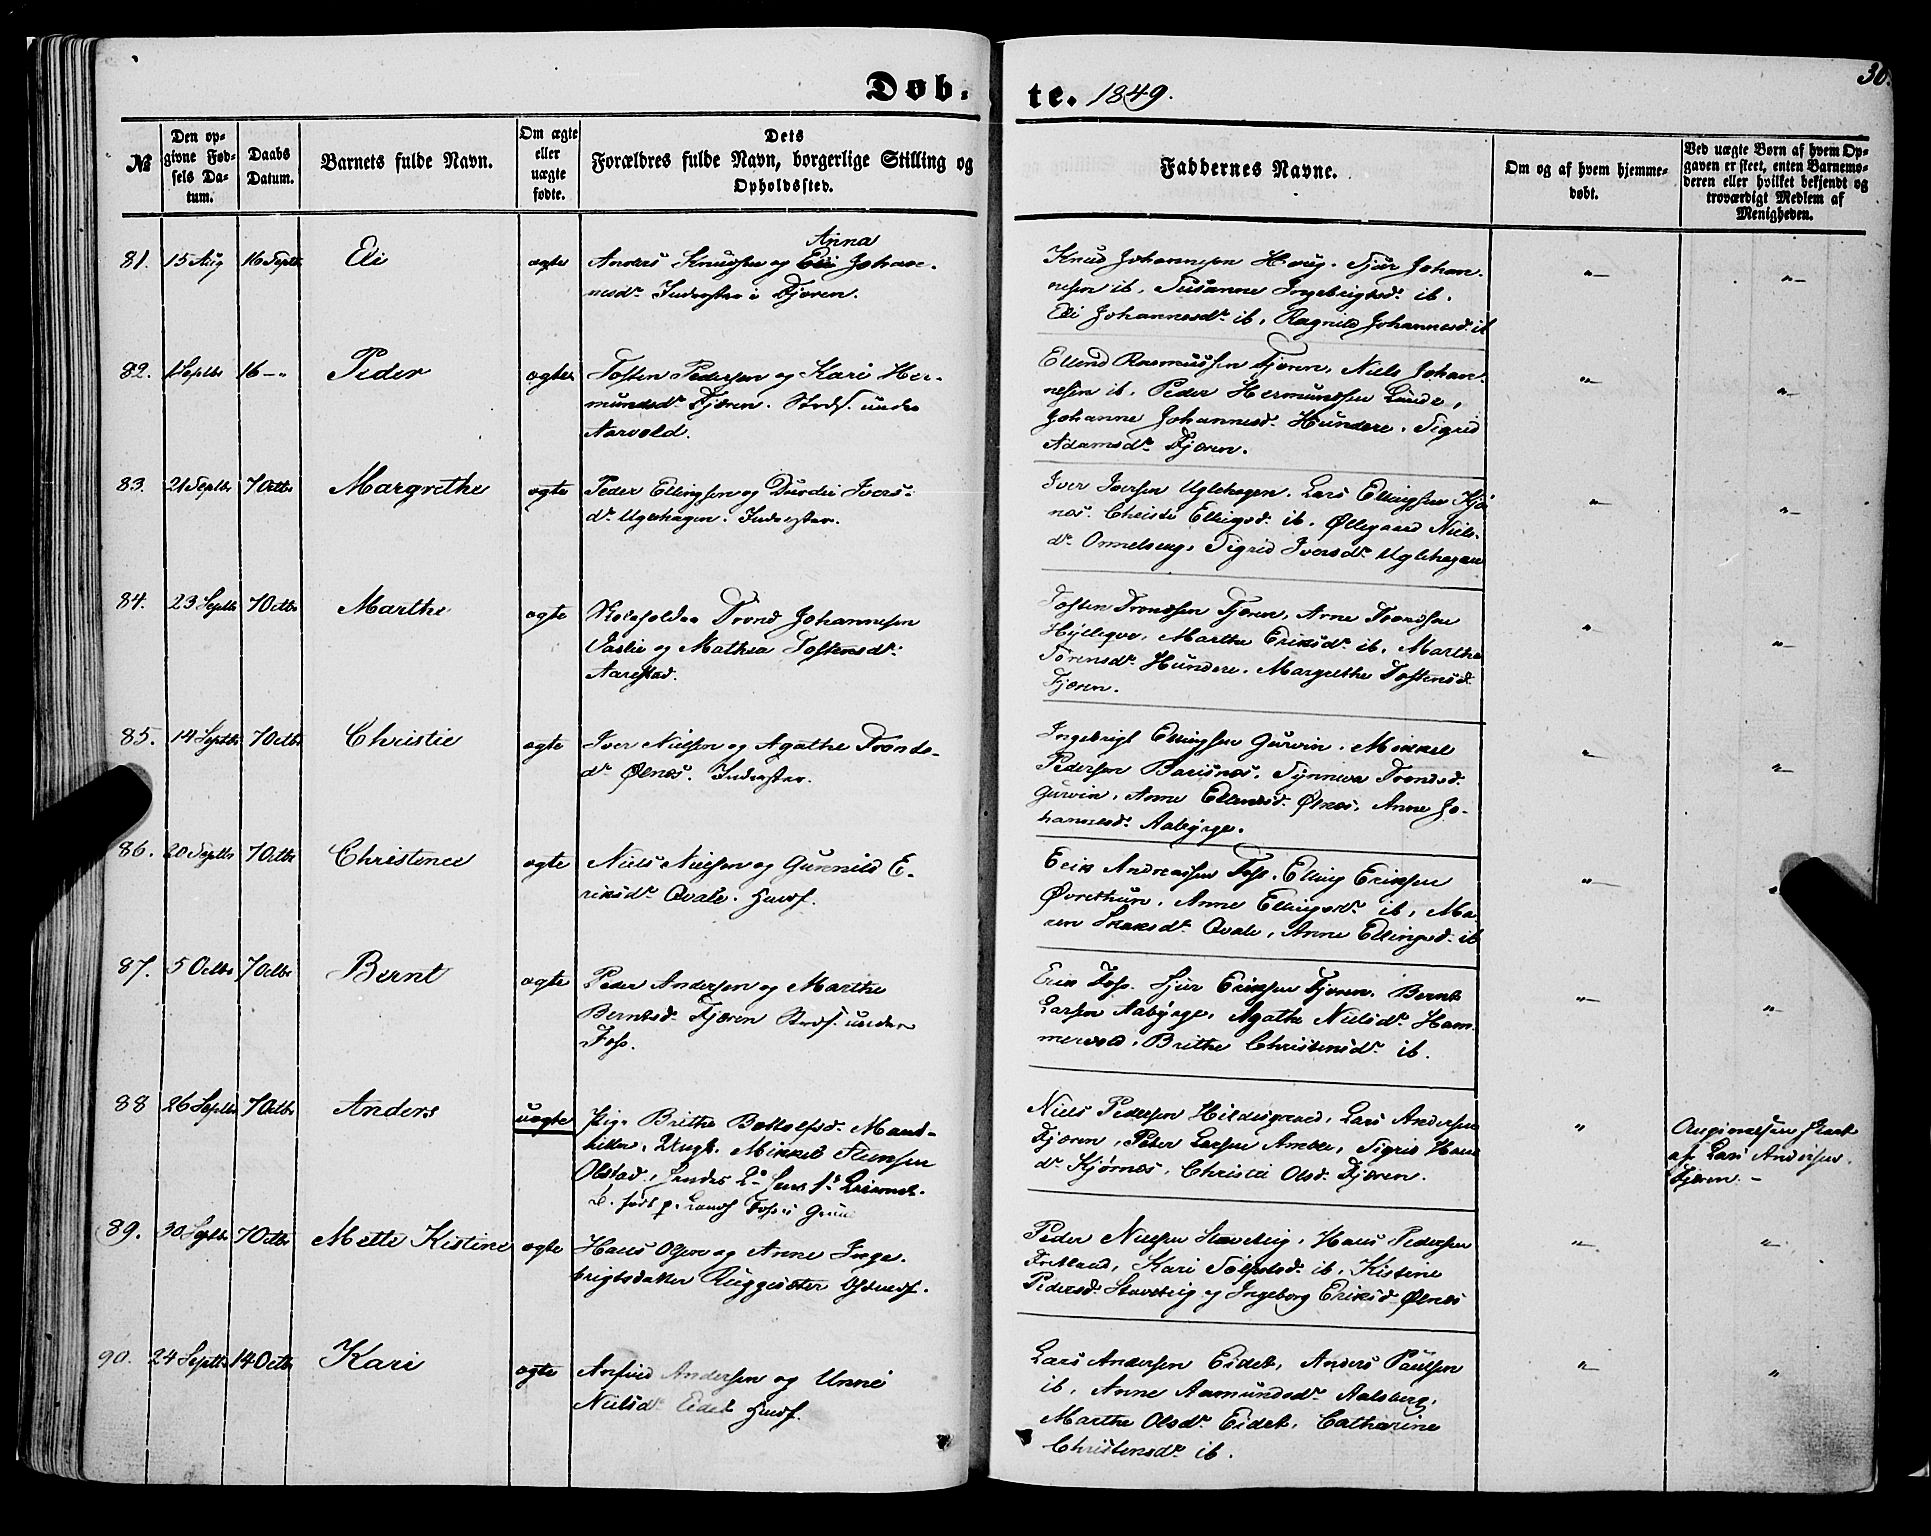 Døb-te. 1849.
30.
№
Den op-
givne Fød-
sels Da-
tum.
Daabs
Datum.
Barnets fulde Navn.
Om ægte
eller
uægte
fødte.
Dets
Forældres fulde Navn, borgerlige Stilling og
Opholdssted.
Faddernes Navne.
Om og af hvem hjemme-
døbt.
Ved uægte Børn af hvem Op-
gaven er skeet, enten Barnemo-
deren eller hvilket bekjendt og
troværdigt Medlem af
Menigheden.
81. 15 Aug 16 Septb Eli ægte
Anna
Anders Knudsen og Eli Johan-
nesdr. Inderster i Fjæren.
Knud Johannesen Houg. Sjur Johan-
nesen ib, Susanne Ingebrigtsd. ib.
Eli Johannesdr. ib, Ragnild Johannesd. ib
82. 1 Septbr 16 –„ Peder ægte
Tosten Pedersen og Kari Her-
mundsdr. Fjæren. Strds. under
Aarvold.
Ellend Rasmussen Fjæren, Niels Johan-
nesen ib, Peder Hermundsen Lunde,
Johanne Johannesd. Hundere. Sigrid
Adamsdr. Fjæren.
83. 21 Septbr 7 Octbr Margrethe ægte
Peder Ellingsen og Durdei Ivers-
dr. Uglehagen. Inderster.
Iver Iversen Uglehagen. Lars Ellingsen Kjø
nes. Christi Ellingsd. ib. Øllegaard Niels-
dr. Ommelseng, Sigrid Iversdr. Uglehagen
84. 23 Septb 7 Octbr Marthe ægte
Skoleholder Trond Johannesen
og Mathea Tostensdr.
Aarestad.
Tosten Trondsen Fjæren, Arne Trondsen
Marthe Eriksdr. ib, Marthe
Sørensdr. Hundere. Margrethe Tostensd.
Fjæren.
85. 14 Septbr 7 Octbr Christie ægte
Iver Nielsen og Agathe Tronds-
dr. Ølnes. Inderster.
Ingebrigt Ellingsen Gurvin. Mikkel
Pedersen Barsnes. Synneva Trondsd.
Gurvin, Anne Ellensd. Ølnes, Anne Jo-
hannesdr. Aabyrge.
86. 20 Septbr 7 Octbr Christence ægte
Niels Nielsen og Gunnild E-
riksdr. Qvale. Huusf.
Erik Andreassen Foss. Elling Eriksen
Øvrethun, Anne Ellingsdr. ib, Ma-
ren Isaksdr. Qvale, Anne Ellingsd. ib
87. 5 Octbr 7 Octbr Bernt ægte
Peder Andersen og Marthe
Berntsd. Fjæren Strds. under
Foss.
Erik Foss. Sjur Eriksen Fjæren. Bernt
Larsen Aabyrge, Agathe Nielsdr. Ham-
mervold, Brithe Christensdr. ib.
88 26 Septbr 7 Octbr Anders uægte
Pig. Brithe Bottolfsd. Mand-
heller, Ungk. Mikkel Flemsen
Olstad,
Niels Pedersen Hildesgaard, Lars Andersen
Fjæren, Peter Larsen Amble, Sigrid Hans
dr. Kjørnes, Christi Olsd. Fjæren.
Angivelsen skeet
af Lars Andersen
Fjæren. –
89. 30 Septbr 7 Octbr Mette Kistine ægte
Hans Olsen og Anne Inge-
brigtsdatter Ruggesæter
Peder Nielsen Stavekig, Hans Pedersen
Fretland, Kari Tolfsd. ib, Kistine
Pedersd. Stavekig og Ingeborg Eriksd. Ølnes
90. 24 Septbr 14 Octbr Kari ægte
Anfind Andersen og Unni
Nielsdr. Eidet Huusf.
Lars Andersen Eidet, Anders Paulsen
ib, Anne Aamundsdr. Aalsberg,
Marthe Olsdr. Eidet, Catharine
Christensdr. ib.